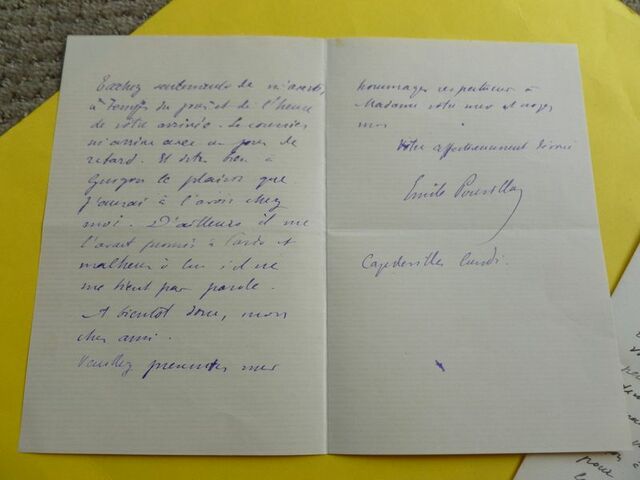 Tachez seulement de m'avertir
à temps du jour et de l'heure
de votre arrivée. Le courrier
m'arrive avec un jour de
retard. Et dites bien à
le plaisir que
j'aurai à l'avoir chez
moi. D'ailleurs il me
l'avait promis à Paris et
malheur à lui s'il ne
me tient pas parole.
A bientôt donc, mon
cher ami.
Veuillez présenter mes
hommages respectueux à
Madame votre mère et croyez
moi
Votre affectueusement dévoué
Emile Pouvillon
Capdeville lundi.